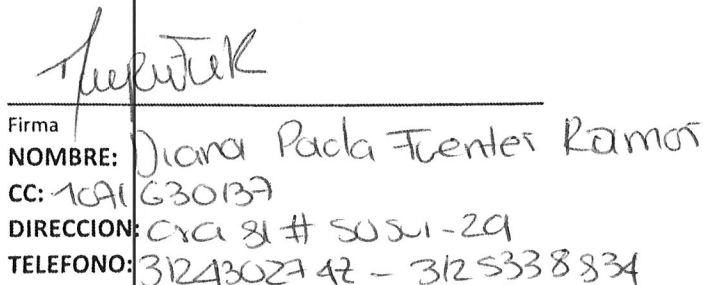 Firma
NOMBRE: Diana Paola Fuentes Ramos
CC: 1091630137
DIRECCION: Cra 81 #
TELEFONO: 3124302747 - 3125338834